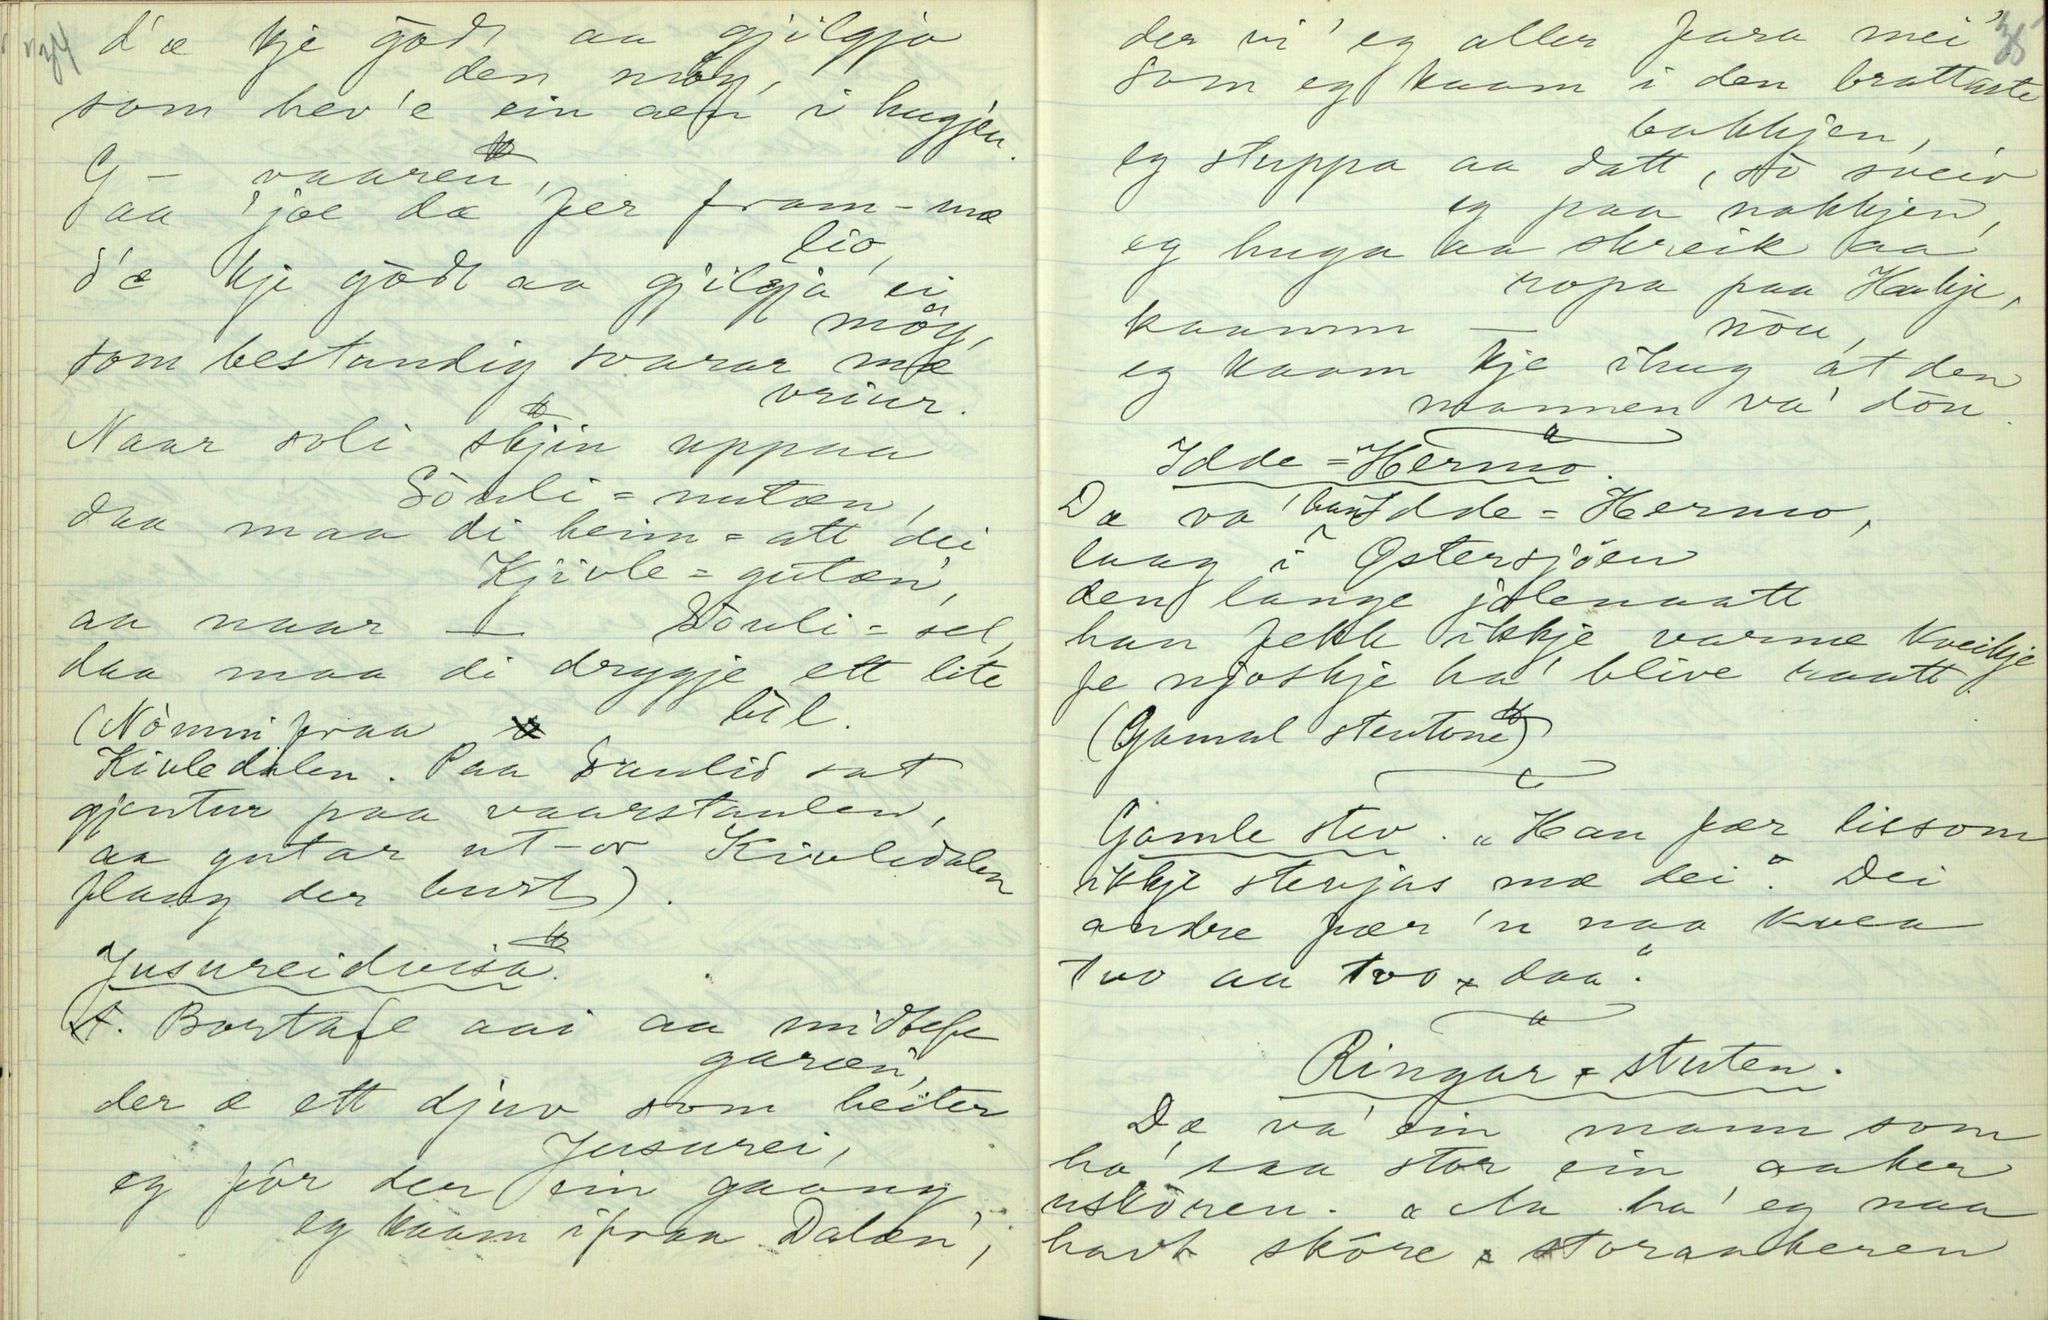 d'æ kje godt aa gjilgja
den möy,
som hev'e ein aen i hugjen.
G — vaaren,
aa joe dæ fer fram-mæ
lio,
d'æ kje godt aa gjilgja ei
möy,
som bestandig svarar mæ
vriur.
Naar soli skjin uppaa
Söuli-nutæn,
daa maa di heim-att dei
Kjivle-gutæn,
aa naar — Söuli-sel,
daa maa di drygje ett lite
bil.
(Nömni fraa
Kivledalen. Paa Saulid sat
gjentur paa vaarstaulen,
aa gutar ut-or Kivledalen
flaug der burt).
Jusureidvisa.
A. Bortafe aai aa midtefe
garæn,
der æ ett djuv som heiter
Jusurei,
eg för der ein gaang
eg kaam ifraa Dalæn,
der vi' eg aller fara mei'
som eg kaam i den brattaste
bakkjen,
eg stuppa aa datt, so sveiv
eg paa nakkjen,
eg huga aa skreik aa
ropa paa Haakje,
kaamm — nöu,
eg kaam kje ihug at den
mannen va' döu.
Idde-Hermo.
Dæ va' han Idde-Hermo,
laag i Østersjöen
den lange jolenaatt
han fekk ikkje varme kveikje
fe njoskje ha' blive vaatt.
(Gamal stutone)
Gamle stev. "Han fær lissom
ikkje stevjas mæ dei". Dei
andre fær 'n naa kvea
tvo aa tvo, daa".
Ringar-stuten.
Dæ va' ein mann som
ha' saa stor ein aaker
uskören. "Aa ha' eg naa
havt sköre storaakeren